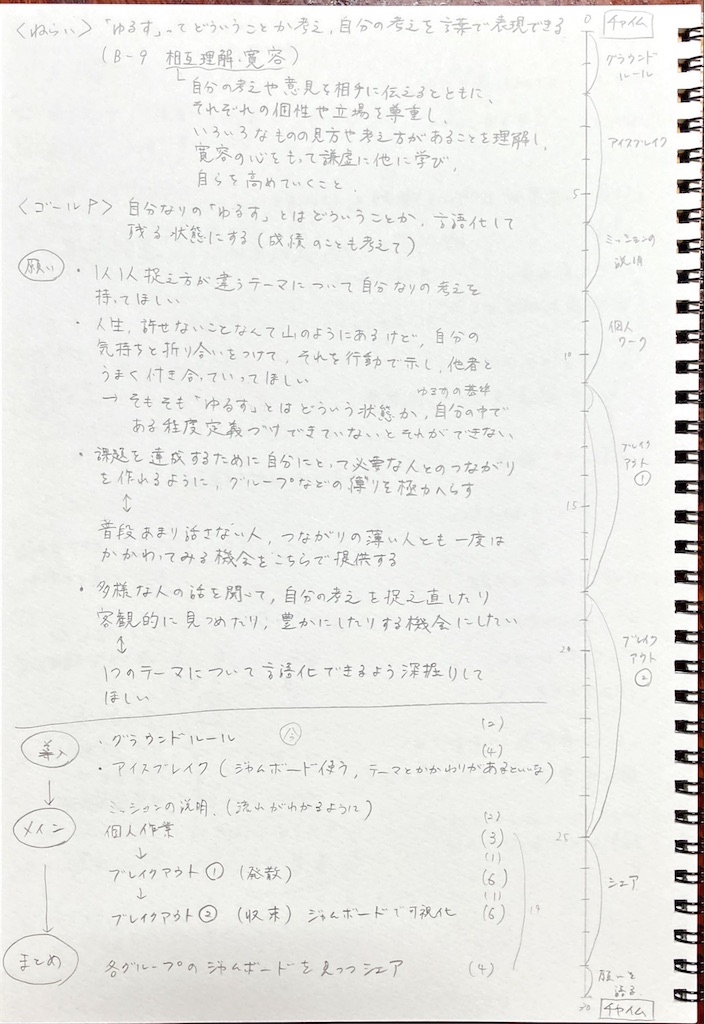 〈ねらい〉「ゆるす」ってどういうことか考え、自分の考えを言葉で表現できる
(B-9 相互理解、寛容)
自分の考えや意見を相手に伝えるとともに、
それぞれの個性や立場を尊重し、
いろいろなものの見方や考え方があることを理解し、
寛容の心をもって謙虚に他に学び、
自らを高めていくこと。
〈ゴールP〉 自分なりの「ゆるす」とはどういうことか、言語化して
残る状態にする(成績のことも考えて)
願い
・1人1人捉え方が違うテーマについて自分なりの考えを
持ってほしい
・人生、許せないことなんて山のようにあるけど、自分の
気持ちと折り合いをつけて、それを行動で示し、他者と
うまく付き合っていってほしい
ゆるすの基準
→ そもそも「ゆるす」とはどういう状態か、自分の中で
ある程度定義づけできていないとそれができない
・課題を達成するために自分にとって必要な人とのつながり
を作れるように、グループなどの縛りを極力へらす
↕
普段あまり話さない人、つながりの薄い人とも一度は
かかわってみる機会をこちらで提供する
・多様な人の話を聞いて、自分の考えを捉え直したり
客観的に見つめたり、豊かにしたりする機会にしたい
↕
1つのテーマについて言語化できるよう深掘りして
ほしい
導入
・グラウンドルール (2)
分
・アイスブレイク(ジャムボード使う、テーマとかかわりがあるといいな)
(4)
↓
メイン
ミッションの説明、(流れがわかるように) (2)
個人作業 (3)
↓ (1)
ブレイクアウト① (発散) (6)
↓ (1)
ブレイクアウト② (収束) ジャムボードで可視化 (6)
19
↓
まとめ
各グループのジャムボードを見つつシェア (4)
0 チャイム
グラウンド
ルール
アイスブレイク
5
ミッションの
説明
個人
ワーク
10
ブレイク
アウト
①
15
20
ブレイク
アウト
②
25
シェア
願いを
語る
30 チャイム